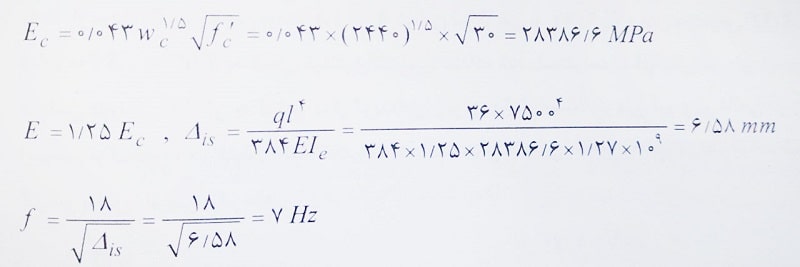 E_c = ۰/۰۴۳ w_c^۱/۵ √f'_c = ۰/۰۴۳ × (۲۴۴۰)^۱/۵ × √۳۰ = ۲۸۳۸۶/۶ MPa
E = ۱/۲۵ E_c , Δ_is = ql^۴ / ۳۸۴EI_e = ۳۶ × ۷۵۰۰^۴ / ۳۸۴ × ۱/۲۵ × ۲۸۳۸۶/۶ × ۱/۲۷ × ۱۰^۹ = ۶/۵۸ mm
f = ۱۸ / √Δ_is = ۱۸ / √۶/۵۸ = ۷ Hz